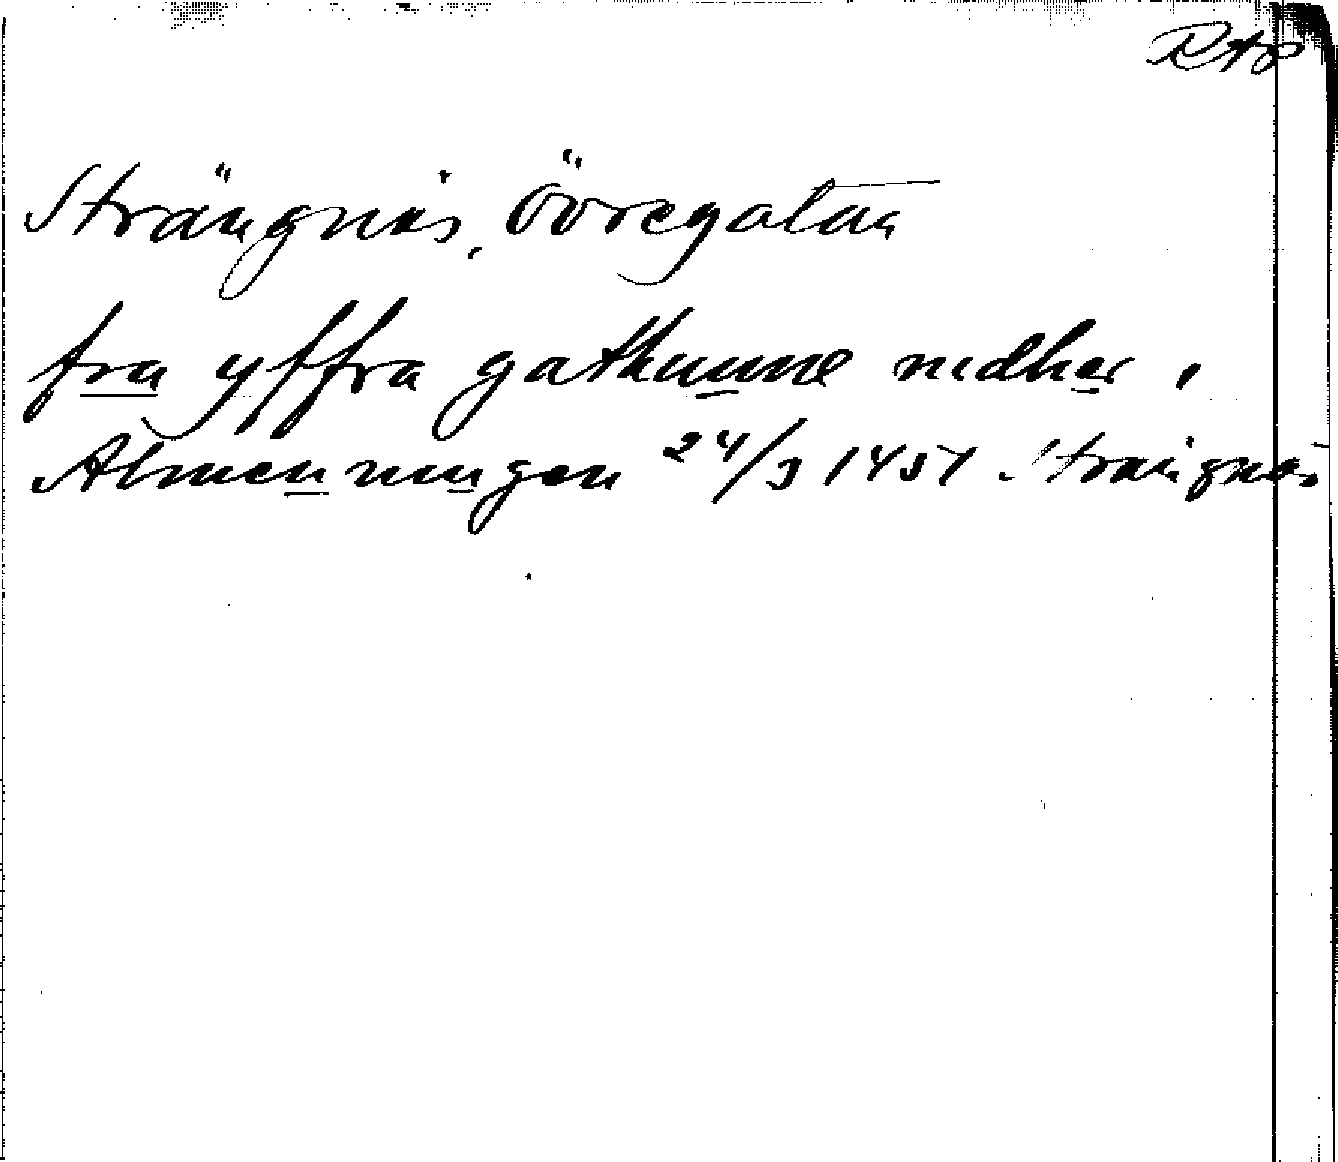 Rtp
Strängnäs, Övregatan
fra yffra gathunne nidher i
Almenningen 24/3 1451 Strängnäs